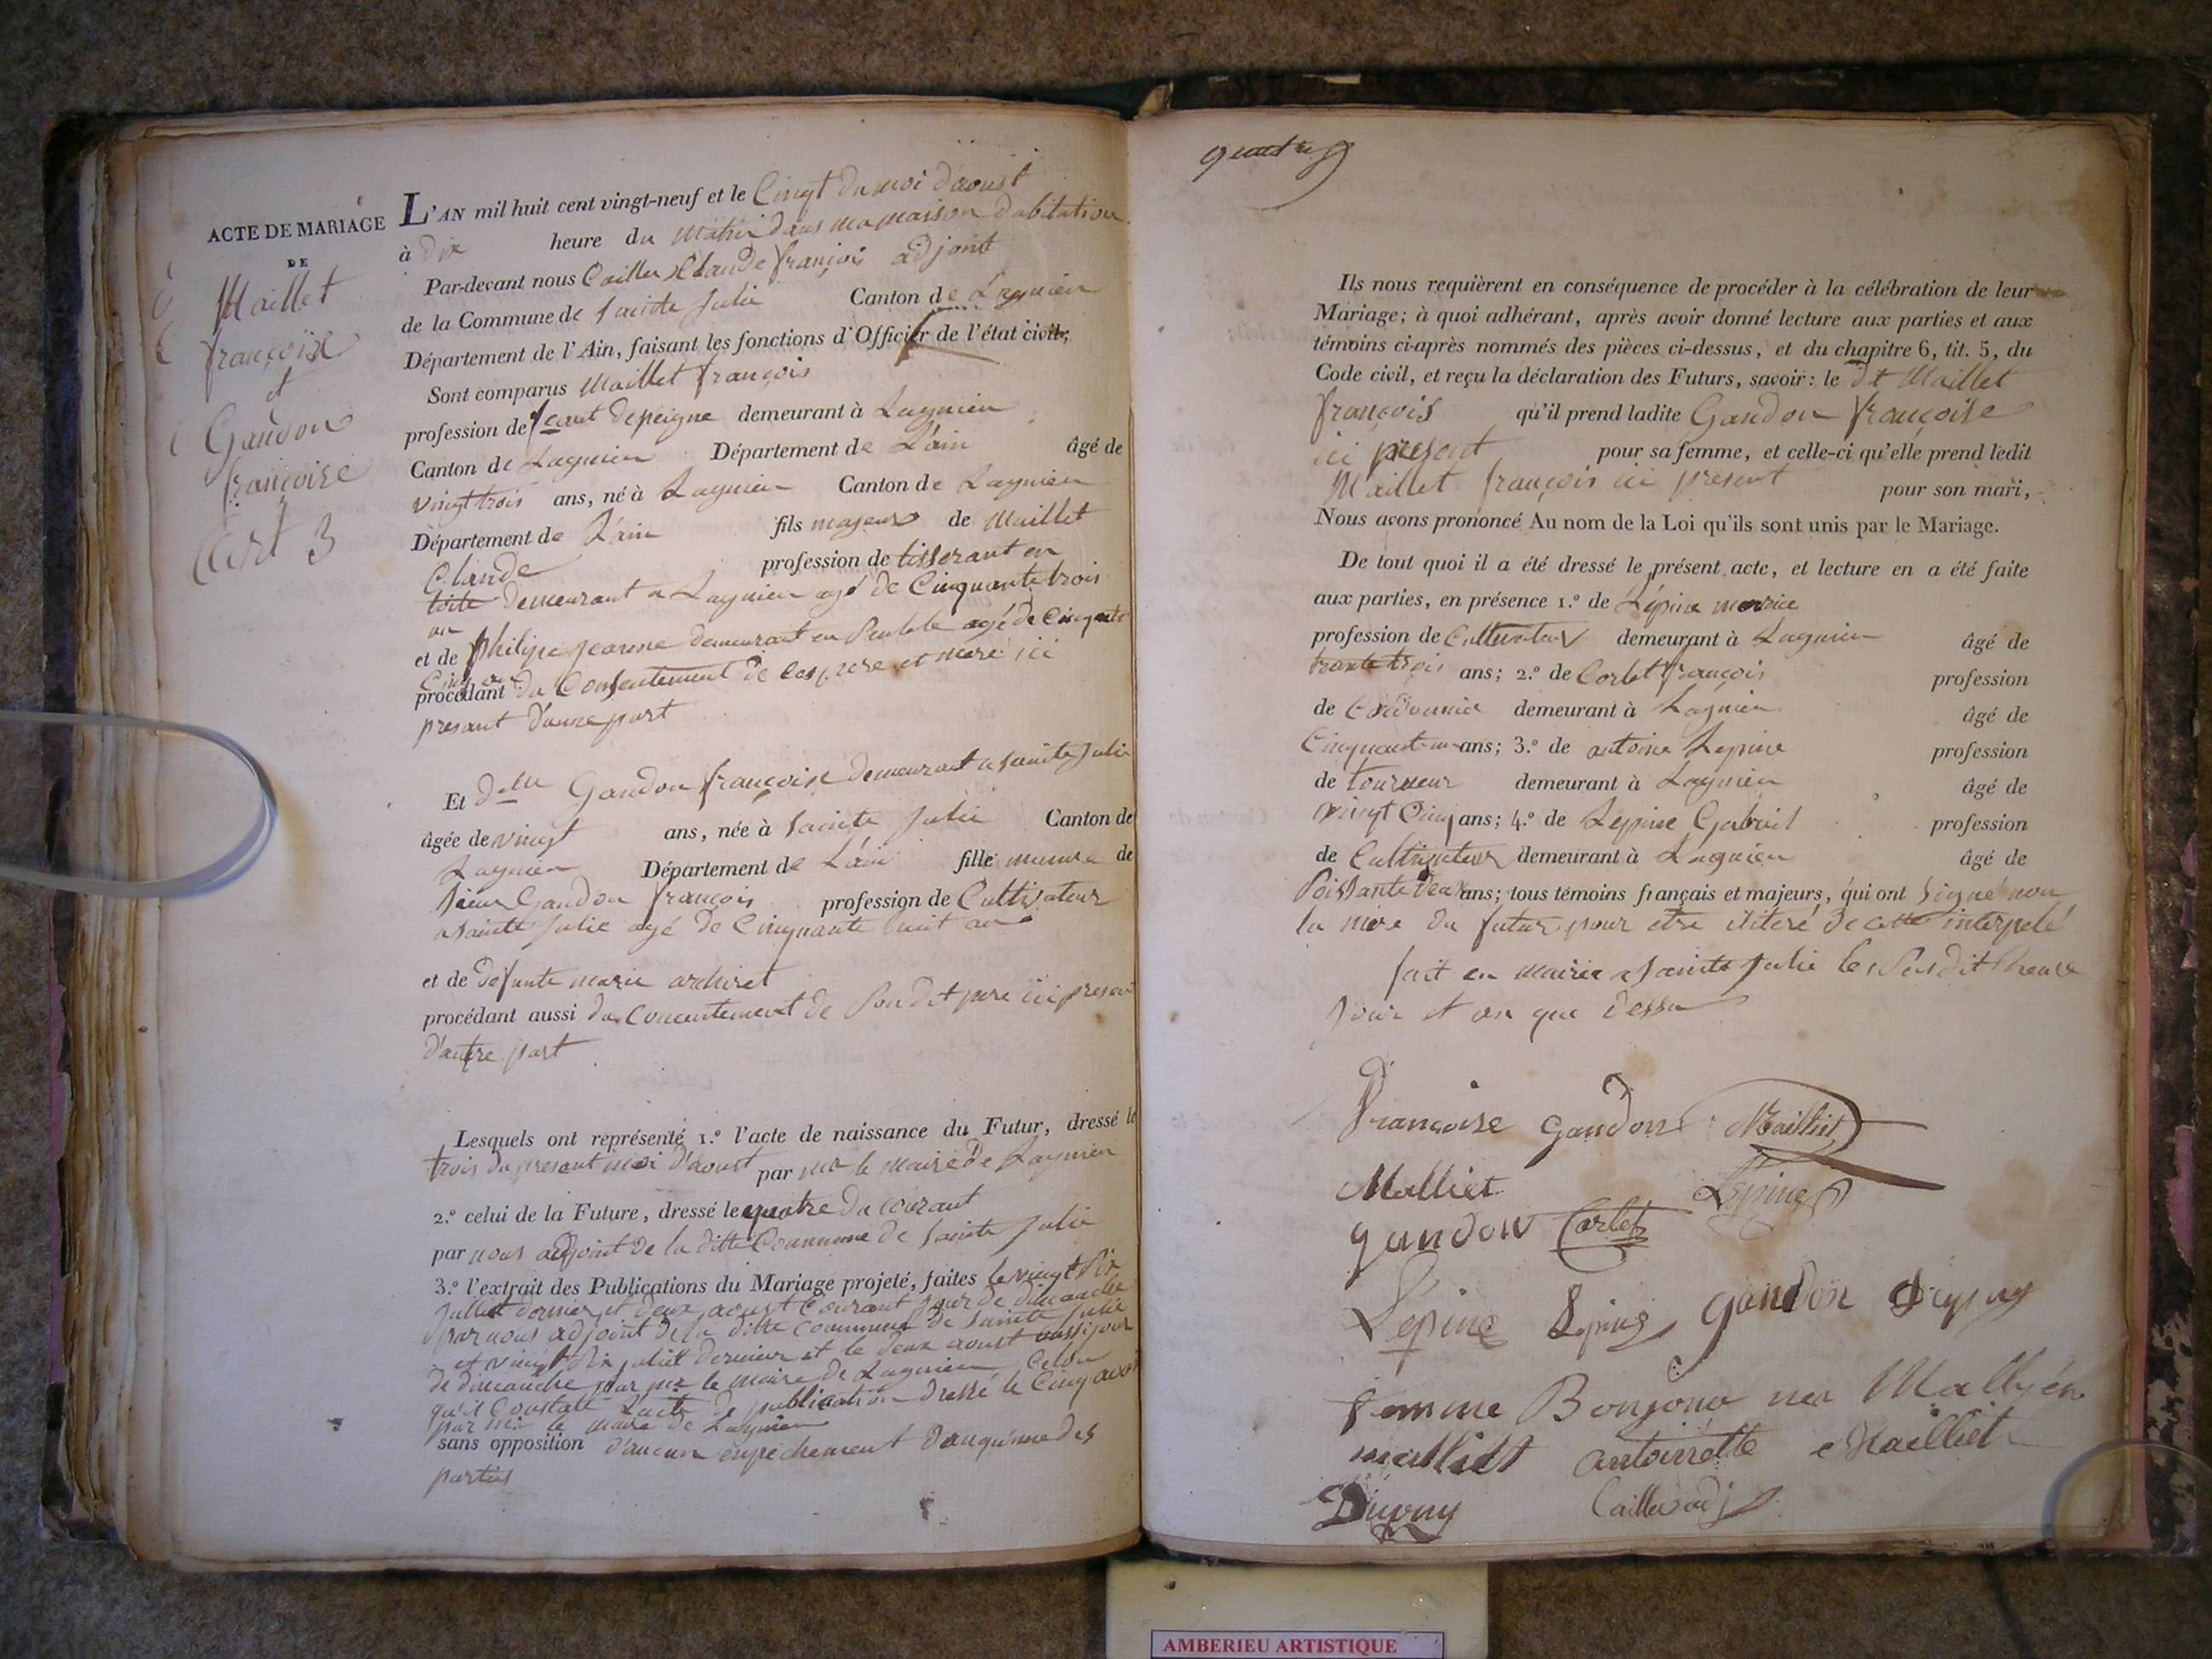 ACTE DE MARIAGE
DE
Maillet
françois
et
Gandon
françoise
art 3
L'AN mil huit cent vingt-neuf et le Cinqt du moi d'aoust
à dix heure du matin dans ma maison dabitation
Par-devant nous Caillu Claude françois adjoint
de la Commune de Sainte Julie Canton de Lagnieu
Département de l'Ain, faisant les fonctions d'Officier de l'état civil;
Sont comparus Maillet françois
profession de depeigne demeurant à Lagnieu
Canton de Lagnieu Département de L'ain âgé de
vingt trois ans, né à Lagnieu Canton de Lagnieu
Département de L'ain fils majeur de Maillet
Claude profession de tisserant en
toile demeurant a Lagnieu agé de Cinquante trois
an
et de philipe jeanne demeurant en agé de Cinquante
Cinq an
procédant du Consentement de ces pere et mere ici
presant d'une part
Et dlle Gandon françoise demeurant a Sainte Julie
âgée de vingt ans, née à Sainte Julie Canton de
Lagnieu Département de L'ain fille mineure de
Sieur Gandon françois profession de Cultivateur
a Sainte Julie agé de Cinquante huit an
et de defunte marie
procédant aussi du Concentement de Son dit pere ici presant
D'autre part
Lesquels ont représenté 1.º l'acte de naissance du Futur, dressé le
trois du present moi d'aoust par mr le maire de Lagnieu
2.º celui de la Future, dressé le quatre du courant
par nous adjoint de la ditte Commune de Sainte Julie
3.º l'extrait des Publications du Mariage projeté, faites le vingt Six
Juillet dernier et deux aoust Courant jour de dimanche
par nous adjoint de la ditte commune de Sainte Julie
et vingt Six juliet dernier et le deux aoust aussi jour
de dimanche par mr le maire de Lagnieu Celon
qu'il Constate L'acte de publication dressé le Cinq aoust
par mr le maire de Lagnieu
sans opposition d'aucun enpechement d'auqu'une des
parties
quatre
Ils nous requièrent en conséquence de procéder à la célébration de leur
Mariage; à quoi adhérant, après avoir donné lecture aux parties et aux
témoins ci-après nommés des pièces ci-dessus, et du chapitre 6, tit. 5, du
Code civil, et reçu la déclaration des Futurs, savoir: le dt Maillet
françois qu'il prend ladite Gandon françoise
ici present pour sa femme, et celle-ci qu'elle prend ledit
Maillet françois ici present pour son mari,
Nous avons prononcé Au nom de la Loi qu'ils sont unis par le Mariage.
De tout quoi il a été dressé le présent acte, et lecture en a été faite
aux parties, en présence 1.º de Lépine morrice
profession de Cultivateur demeurant à Lagnieu âgé de
trante trois ans; 2.º de Corlet françois profession
de Cordonnier demeurant à Lagnieu âgé de
Cinquante un ans; 3.º de antoine Lepine profession
de tourneur demeurant à Lagnieu âgé de
vingt Cinq ans; 4.º de Lepine Gabriel profession
de Cultivateur demeurant à Lagnieu âgé de
Soissante deux ans; tous témoins français et majeurs, qui ont Signé non
la mere du futur pour etre ilitéré de cette interpelé
fait en mairie a Sainte Julie les Susdit heure
jour et an que dessu
Françoise Gandon Mailliet
Malliet Lepine
gandon Carlet
Lepine Lepine Gandon Dupuy
femme Bonjour nee Mallyén
malliet antoinette Mailliet
Dupuy Caillu adj
AMBERIEU ARTISTIQUE